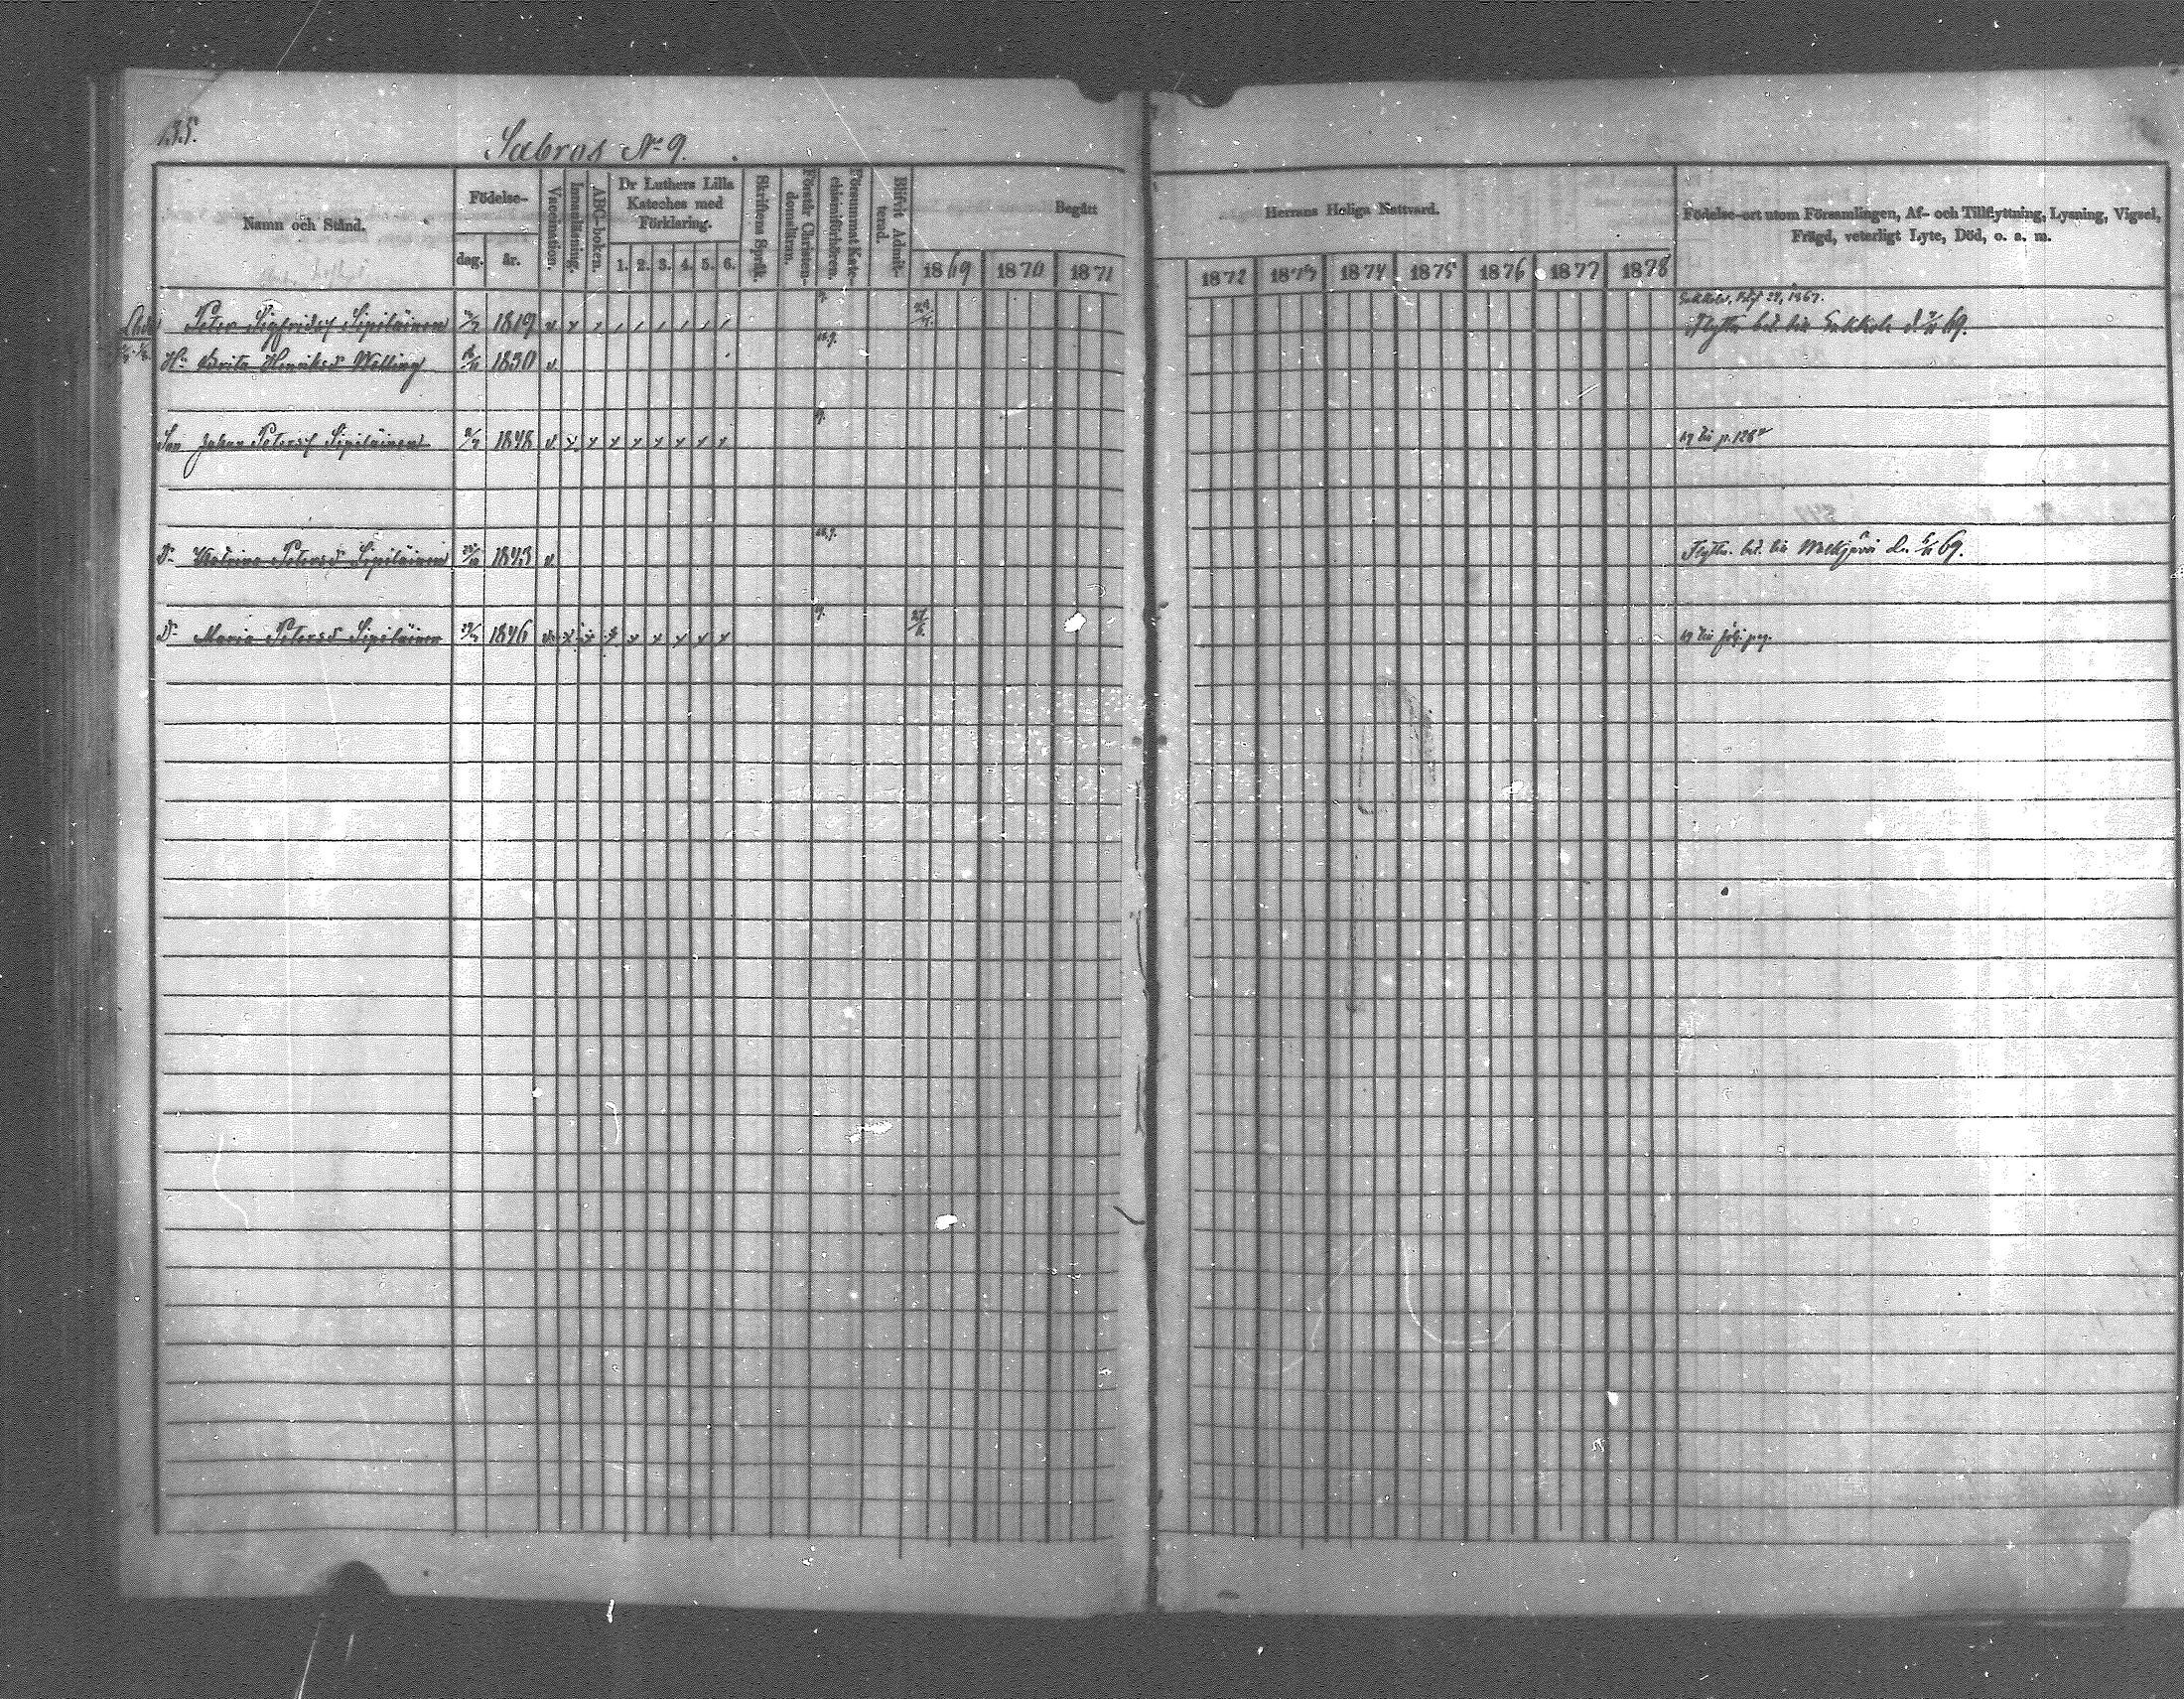 135.
Sabros No 9.
Namn och Stånd.
Födelse-
dag. år.
Vaccination.
Innanläsning.
ABC-boken.
Dr Luthers Lilla
Kateches med
Förklaring.
1. 2. 3. 4. 5. 6.
Skriftens Språk.
Förstår Christen-
domslärn.
Försummat Kate-
chismiförhören.
Blifvit Admit-
terad.
Begått
1869 1870 1871
Herrans Heliga Nattvard.
1872 1873 1874 1875 1876 1877 1878
Födelse-ort utom Församlingen, Af- och Tillflyttning, Lysning, Vigsel,
Frägd, veterligt Lyte, Död, o. s. m.
Peter Sigfridsf Sipiläinen 1819 v x
Flyttn. bet. till Sakkola d. 69.
Hu Henriksd Welling 1830 v.
Son Johan Petersf Sipiläinen 1848 v x x x x x x x x
p. 128
Dr Katrina Petersd Sipiläinen 1843 v.
Flyttn. bet. till 69.
Dr Maria Petersd Sipiläinen 1846 v x x x x x x x x
27/6.
till följ. pag.